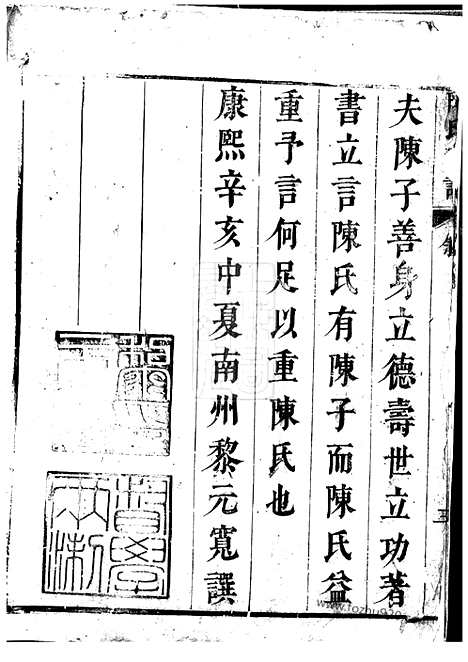 夫陳子善身立德壽世立功著
書立言陳氏有陳子而陳氏益
重予言何足以重陳氏也
康熙辛亥中夏南州黎元寬譔
三